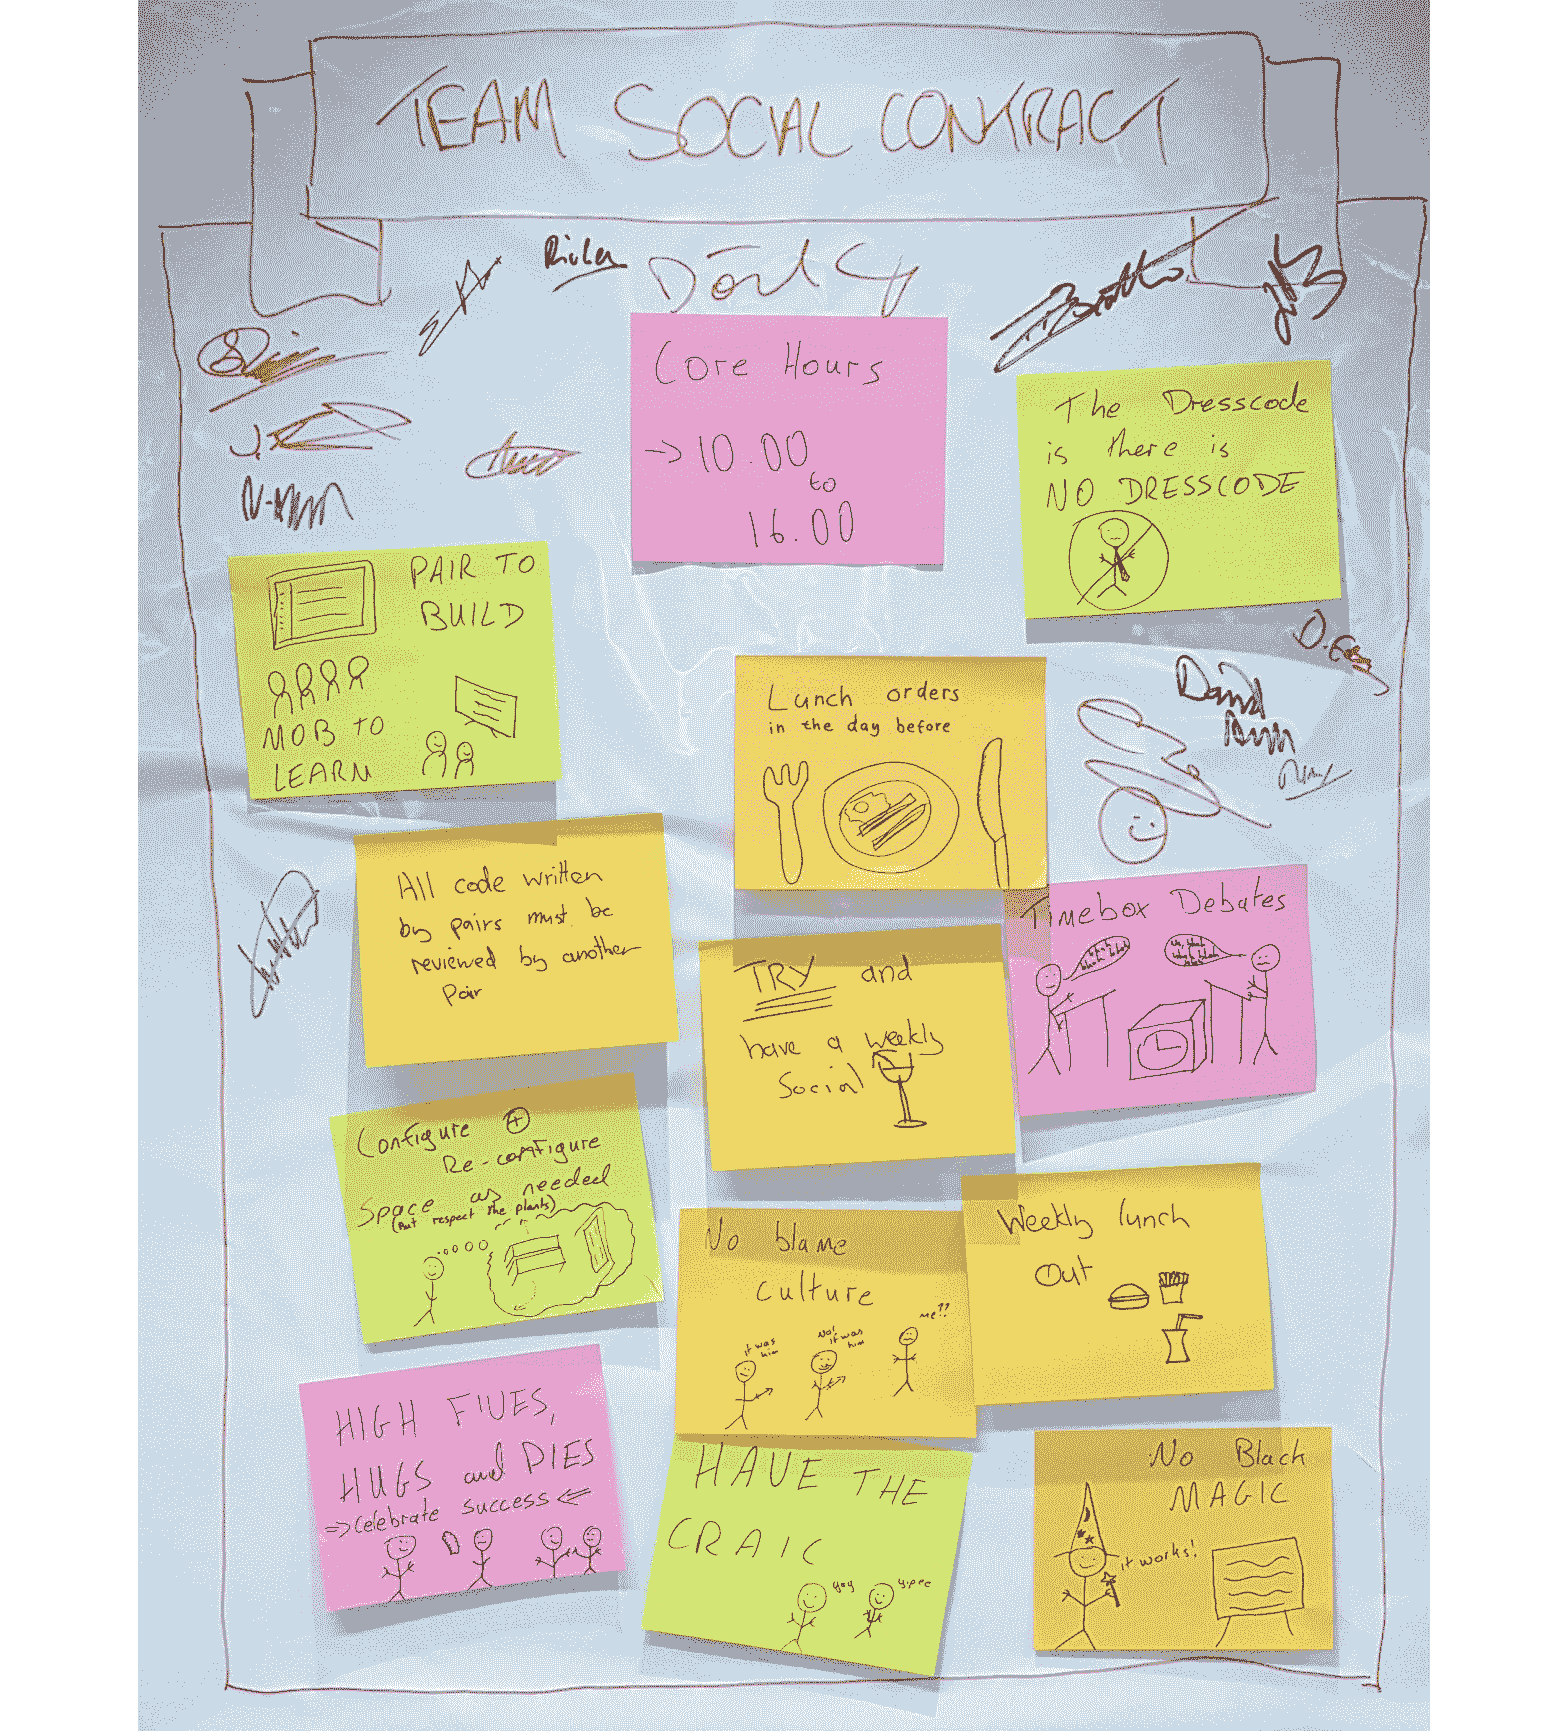 TEAM SOCIAL CONTRACT
Core Hours
→ 10.00
to
16.00
The Dresscode
is there is
NO DRESSCODE
PAIR TO
BUILD
MOB TO
LEARN
Lunch orders
in the day before
David
All code written
by pairs must be
reviewed by another
pair
Timebox Debates
blah
blah blah
blah
blah blah
blah
TRY and
have a weekly
Social
Configure +
Re-configure
Space as needed
(But respect the plants)
No blame
culture
it was
him
No!
it was
him
me??
Weekly lunch
Out
HIGH FIVES,
HUGS and PIES
⇒ Celebrate success ⇐
HAVE THE
CRAIC
yay
yipee
No Black
MAGIC
it works!